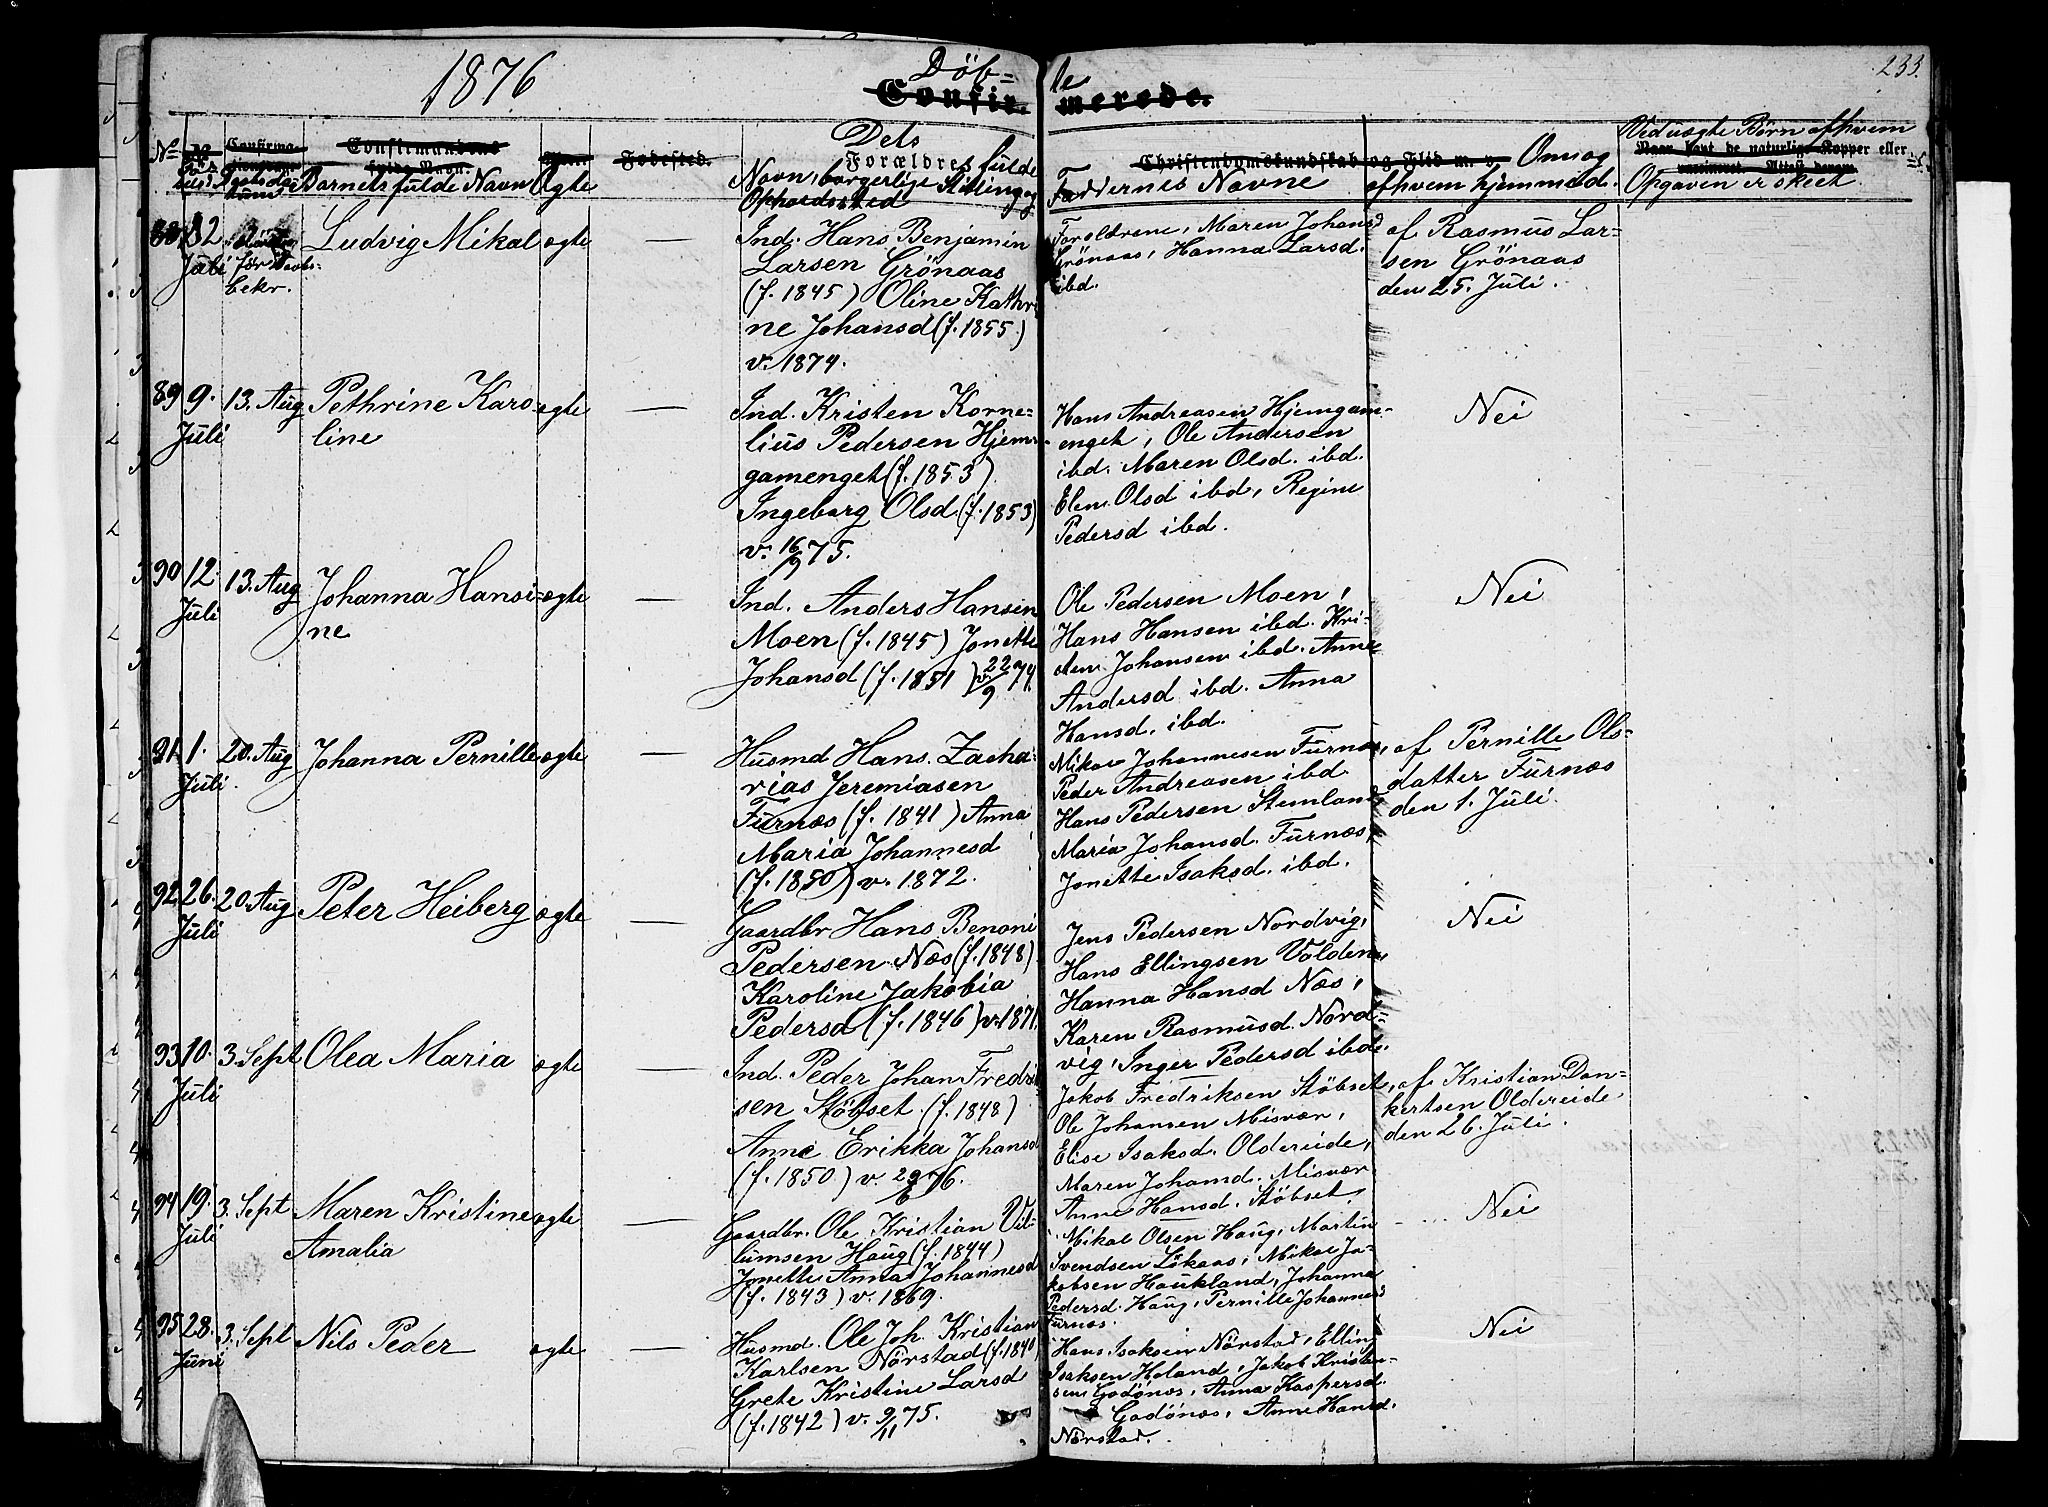 1876
Döb= te
Confir. merede.
233.
No Barnets fulde Navn Ægte
Confirmandens fulde Navn.
Födested.
Dets
Forældres fulde
Navn, borgerlige Stilling og
Opholdssted
Christendomskundskab og Flid m. v.
Faddernes Navne
Om og
af hvem hjemmed.
Ved uægte Börn af hvem
Opgaven er skeet
Naar havt de naturlige Kopper eller
88 2 Juli för Daabs-
bekr.
Ludvig Mikal ægte —
Ind. Hans Benjamin
Larsen Grönaas
(f. 1845) Oline Kathri
ne Johansd (f. 1855)
v. 1874.
Forældrene, Maren Johansd
Grönaas, Hanna Larsd.
ibd.
af Rasmus Lar=
sen Grönaas
den 25. Juli.
89 9. Juli 13. Aug Pethrine Karo-
line
ægte —
Ind. Kristen Korne=
lius Pedersen Hjem-
gamenget (f. 1853)
Ingeborg Olsd (f. 1853)
v. 16/9 75.
Hans Andreasen Hjemgam-
enget, Ole Andersen
ibd. Maren Olsd. ibd.
Elen Olsd ibd, Regine
Pedersd ibd.
Nei
90 12. Juli 13. Aug Johanna Hansi-
ne
ægte —
Ind. Anders Hansen
Moen (f. 1845) Jonette
Johansd (f. 1851) v. 22/9 74.
Ole Pedersen Moen,
Hans Hansen ibd. Kri-
sten Johansen ibd. Anne
Andersd ibd. Anna
Hansd. ibd.
Nei
91 1. Juli. 20. Aug Johanna Pernille ægte —
Husmd Hans Zacha-
rias Jeremiasen
Furnæs (f. 1841) Anna
Maria Johannesd
(f. 1850) v. 1872.
Mikal Johannesen Furnæs,
Peder Andreasen ibd
Hans Pedersen Stemland
Maria Johansd. Furnæs,
Jonette Isaksd. ibd.
af Pernille Ols-
datter Furnæs
den 1. Juli.
92 26. Juli 20. Aug Peter Heiberg ægte —
Gaardbr Hans Benoni
Pedersen Næs (f. 1848)
Karoline Jakobia
Pedersd (f. 1846) v. 1871.
Jens Pedersen Nordvig,
Hans Ellingsen Volden,
Hanna Hansd Næs,
Karen Rasmusd. Nord-
vig, Inger Pedersd ibd.
Nei
93 10. Juli 3. Sept Olea Maria ægte —
Ind. Peder Johan Fredri
sen Stöbset (f. 1848)
Anne Erikka Johansd
(f. 1850) v. 76.
Jakob Fredriksen Stöbset,
Ole Johansen Misvær,
Elise Isaksd. Oldereide,
Maren Johansd. Misvær
Anne Hansd. Stöbset
af Kristian Dan=
kertsen Oldereide
den 26. Juli.
94 19. Juli 3. Sept Maren Kristine
Amalia
ægte —
Gaardbr. Ole Kristian Vil-
lumsen Haug (f. 1844)
Jonette Anna Johannesd
(f. 1843) v. 1869.
Mikal Olsen Haug, Martin
Svendsen Lökaas, Mikal Ja-
kobsen Haukland, Johanna
Pedersd. Haug, Pernille Johannesd
Furnæs.
Nei
95 28. Juni 3. Sept Nils Peder ægte —
Husmd. Ole Joh. Kristian
Karlsen Nörstad (f. 1840)
Grete Kristine Larsd
(f. 1842) v. 9/11 75.
Hans Isaksen Nörstad, Elling
Isaksen Holand, Jakob Kristen-
sen Godönæs, Anna Kaspersd.
Godönæs, Anne Hansd.
Nörstad.
Nei